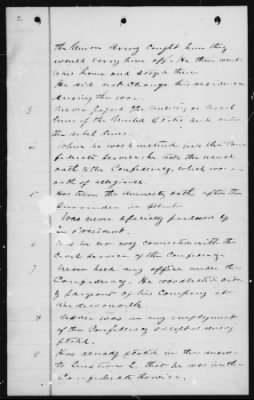 2
the Union Army caught him they
would carry him off. He then went
home and stayed there
He did not change his residence
during the war.
3 Never passed the Military or Naval
lines of the United States, and enter
the rebel lines.
4 When he was mustered into the Con-
federate service, he took the usual
oath to the Confederacy, which was an
oath of allegiance.
5 Has taken the amnesty oath after the
Surrender in
Was never officially pardoned by
the President.
6 Was in no way connected with the
Civil Service of the Confederacy.
7 Never held any office under the
Confederacy. He was elected
Sargeant of his Company at
8 Never was in any employment
of the Confederacy except as already
stated.
9 Has already stated in the answer
to Question 2, that he was in the
Confederate Service.